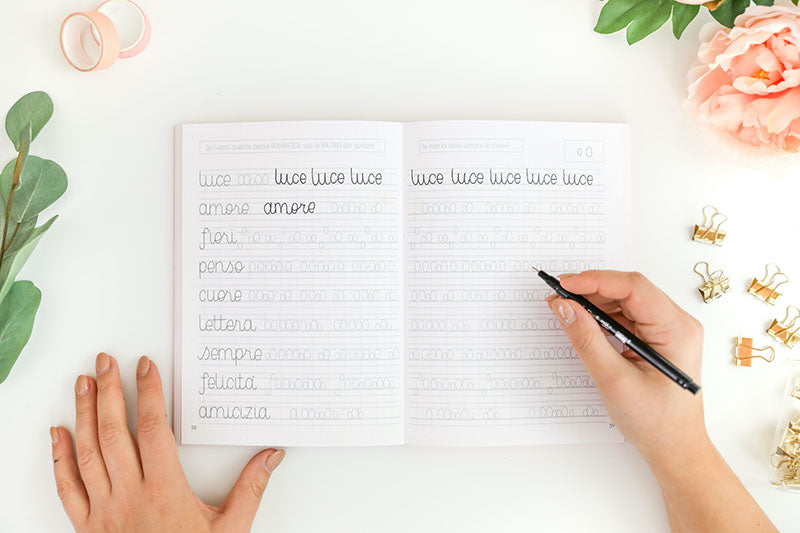 Scriviamo qualche parola ROMANTICA: usa le MATRICI per guidarti
luce luce luce luce
amore amore
fiori
penso
cuore
lettera
sempre
felicità
amicizia
58
le matrici sono sempre le stesse!
luce luce luce luce luce
59